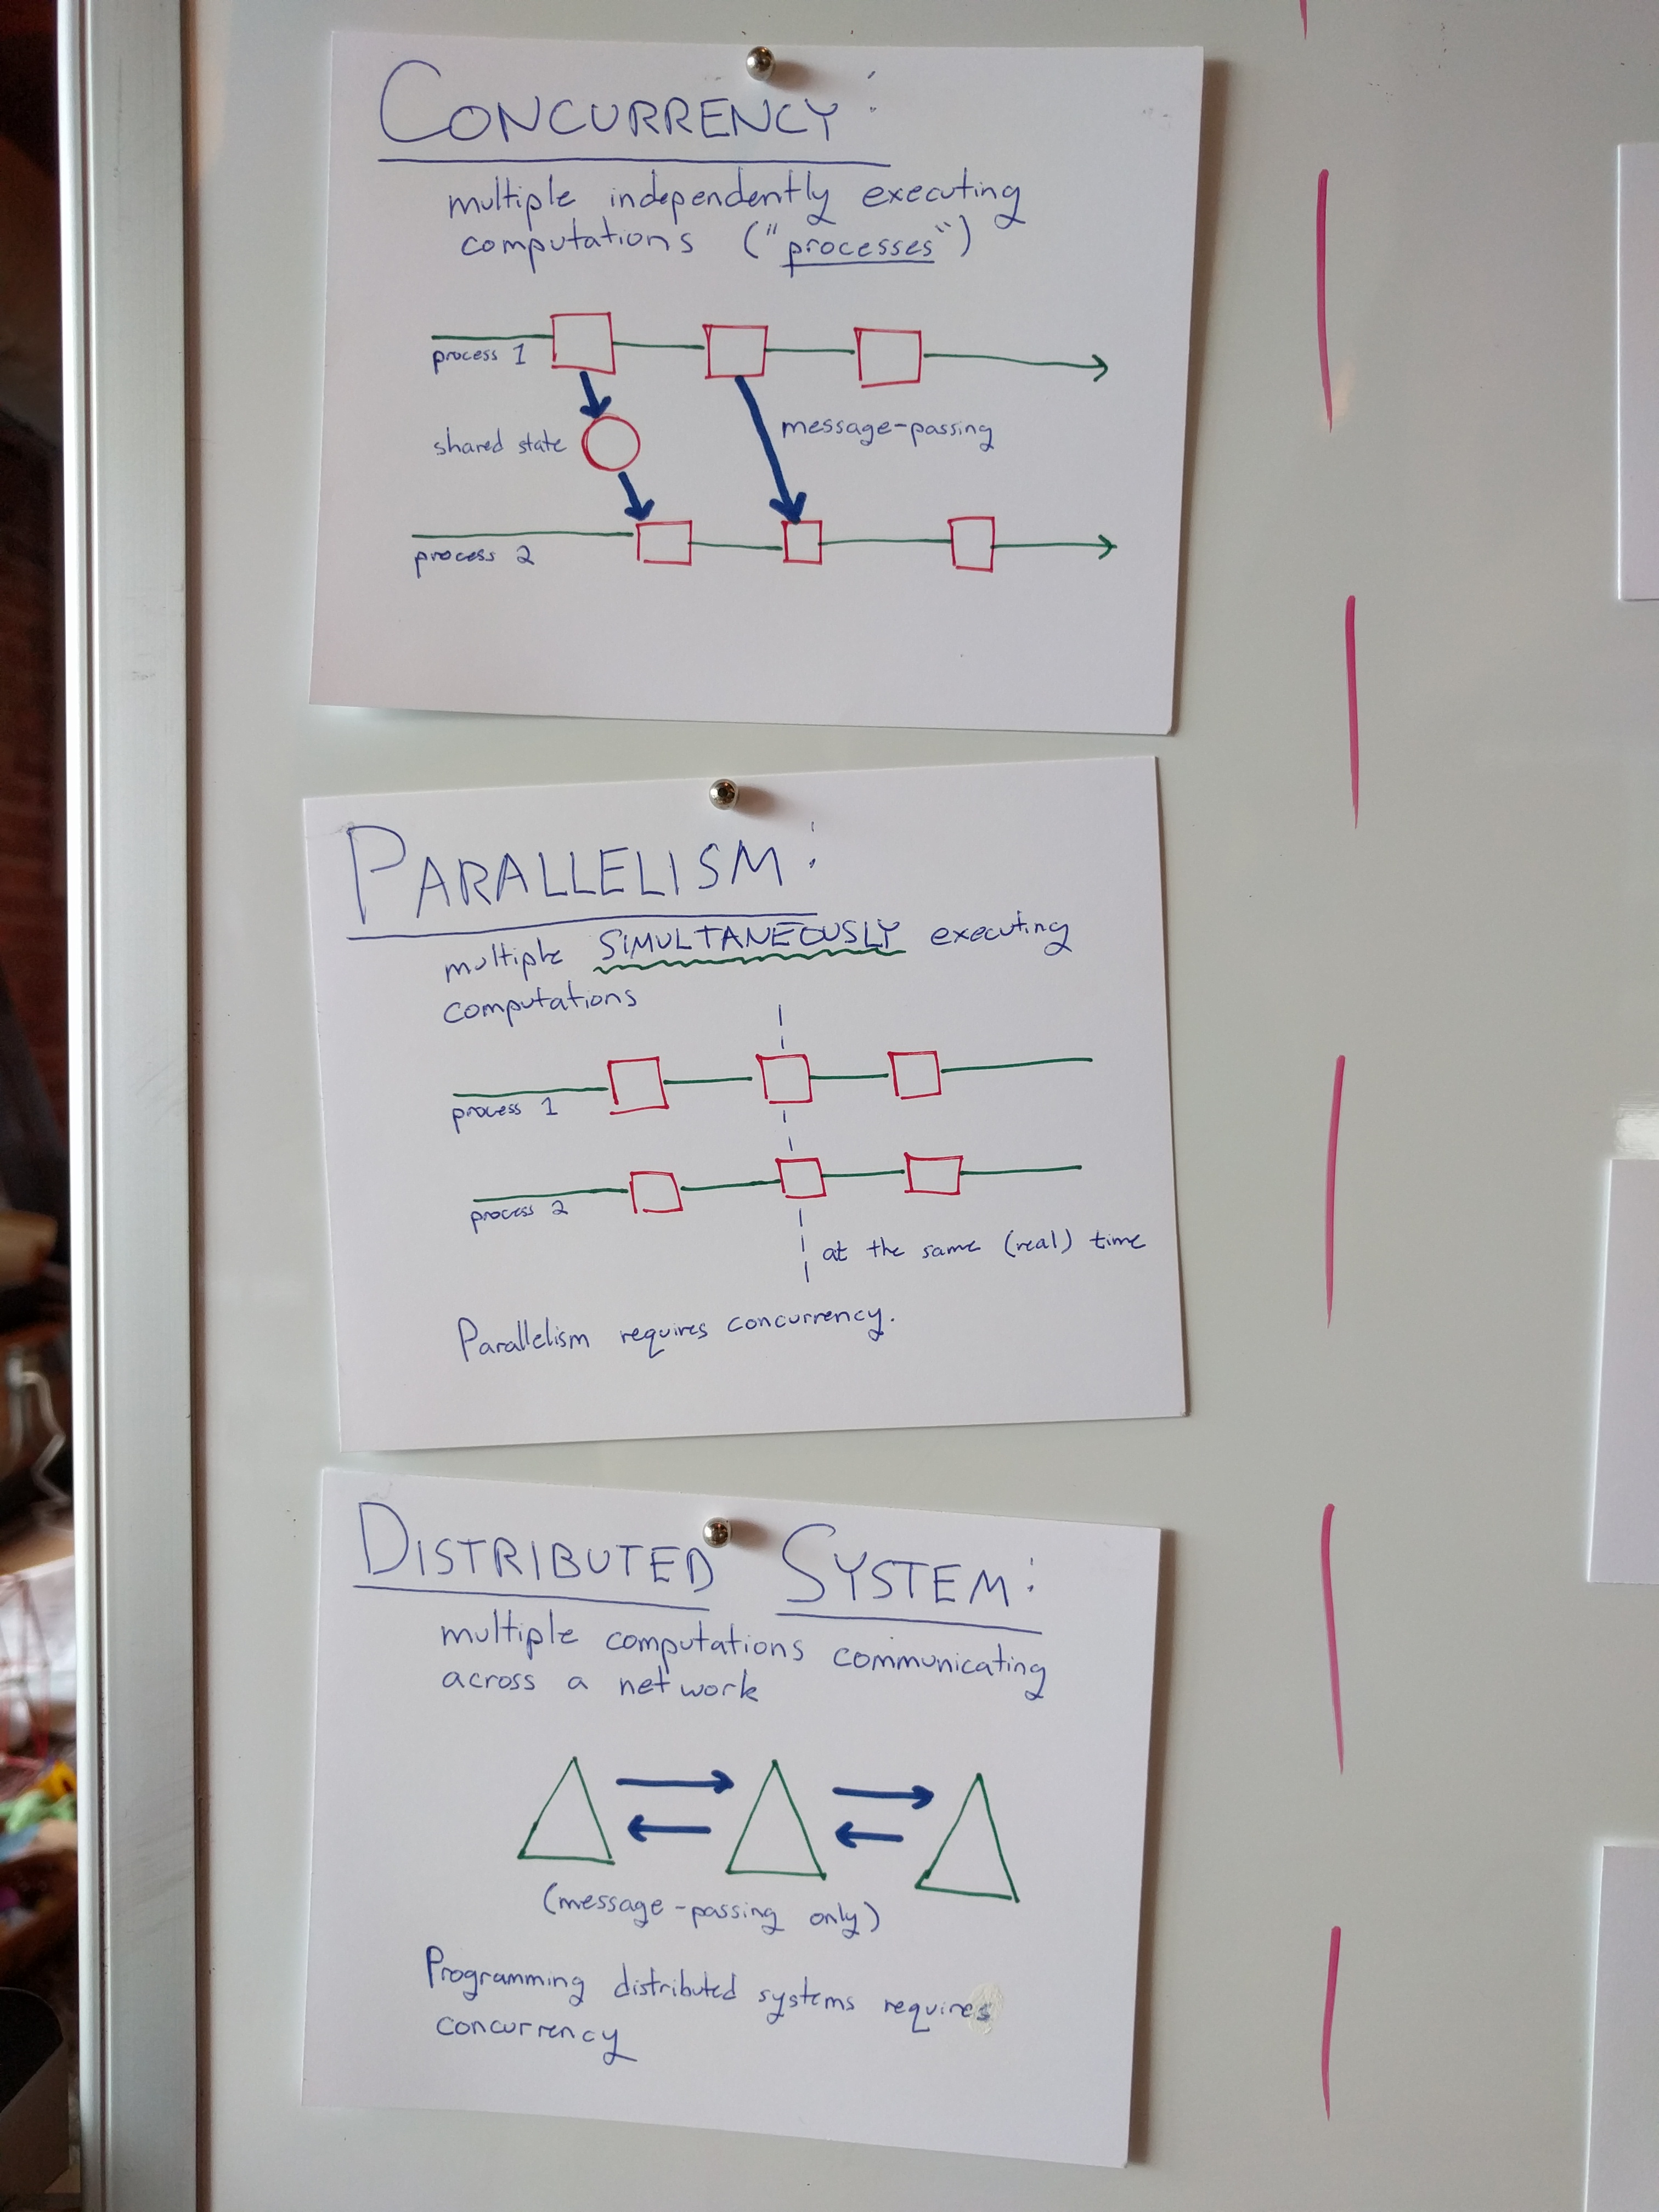 CONCURRENCY:
multiple independently executing
computations ("processes")
process 1
shared state
message-passing
process 2
PARALLELISM:
multiple SIMULTANEOUSLY executing
computations
process 1
process 2
at the same (real) time
Parallelism requires concurrency.
DISTRIBUTED SYSTEM:
multiple computations communicating
across a network
(message-passing only)
Programming distributed systems requires
concurrency